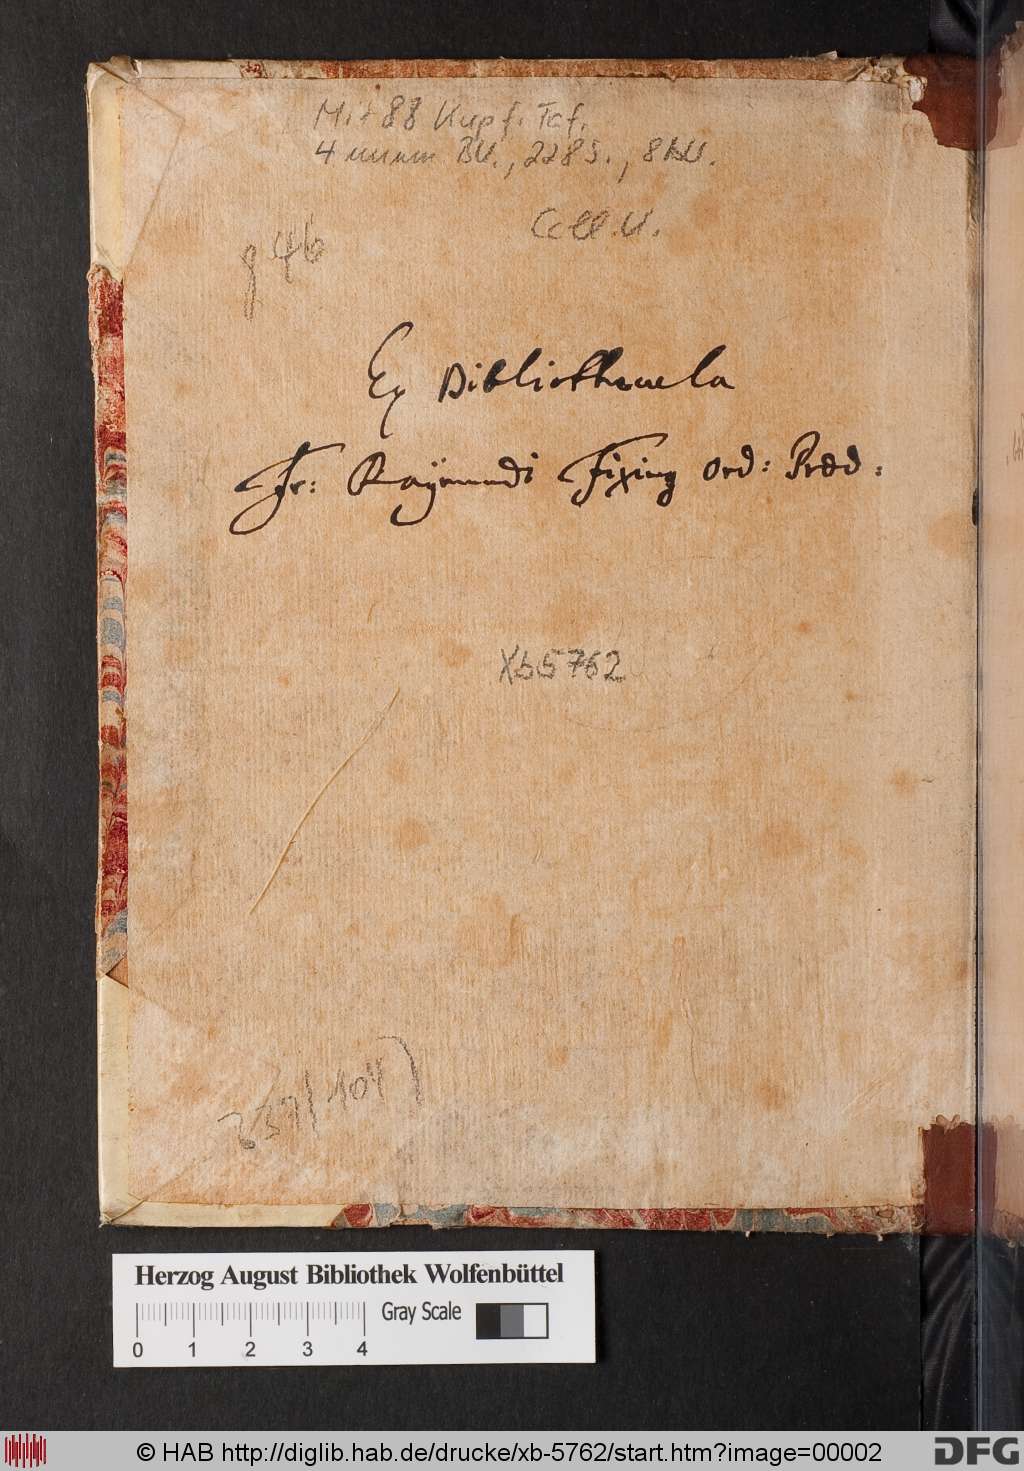 Mit 88 Kupf. Taf.
4 unnum Bll., 228 S., 8 Bll.
Coll. V.
g 46
Ex Bibliothecula
Fr: Raÿmundi Fixing Ord: Præd:
Xb 5762
337/104
Herzog August Bibliothek Wolfenbüttel
Gray Scale
0 1 2 3 4
© HAB http://diglib.hab.de/drucke/xb-5762/start.htm?image=00002
DFG